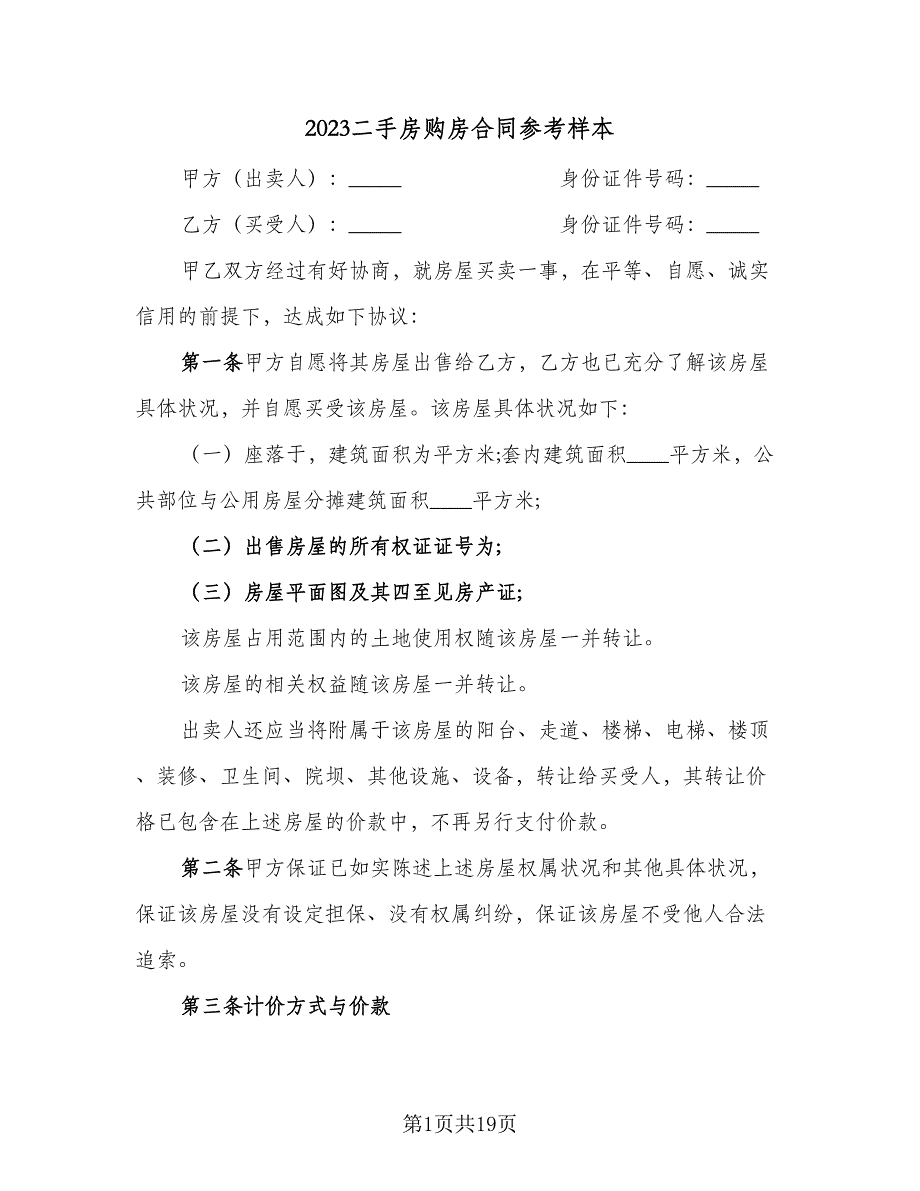 2023二手房购房合同参考样本
甲方（出卖人）：_____ 身份证件号码：_____
乙方（买受人）：_____ 身份证件号码：_____
甲乙双方经过有好协商，就房屋买卖一事，在平等、自愿、诚实
信用的前提下，达成如下协议：
第一条甲方自愿将其房屋出售给乙方，乙方也已充分了解该房屋
具体状况，并自愿买受该房屋。该房屋具体状况如下：
（一）座落于，建筑面积为平方米;套内建筑面积____平方米，公
共部位与公用房屋分摊建筑面积____平方米;
（二）出售房屋的所有权证证号为;
（三）房屋平面图及其四至见房产证;
该房屋占用范围内的土地使用权随该房屋一并转让。
该房屋的相关权益随该房屋一并转让。
出卖人还应当将附属于该房屋的阳台、走道、楼梯、电梯、楼顶
、装修、卫生间、院坝、其他设施、设备，转让给买受人，其转让价
格已包含在上述房屋的价款中，不再另行支付价款。
第二条甲方保证已如实陈述上述房屋权属状况和其他具体状况，
保证该房屋没有设定担保、没有权属纠纷，保证该房屋不受他人合法
追索。
第三条计价方式与价款
第1页共19页